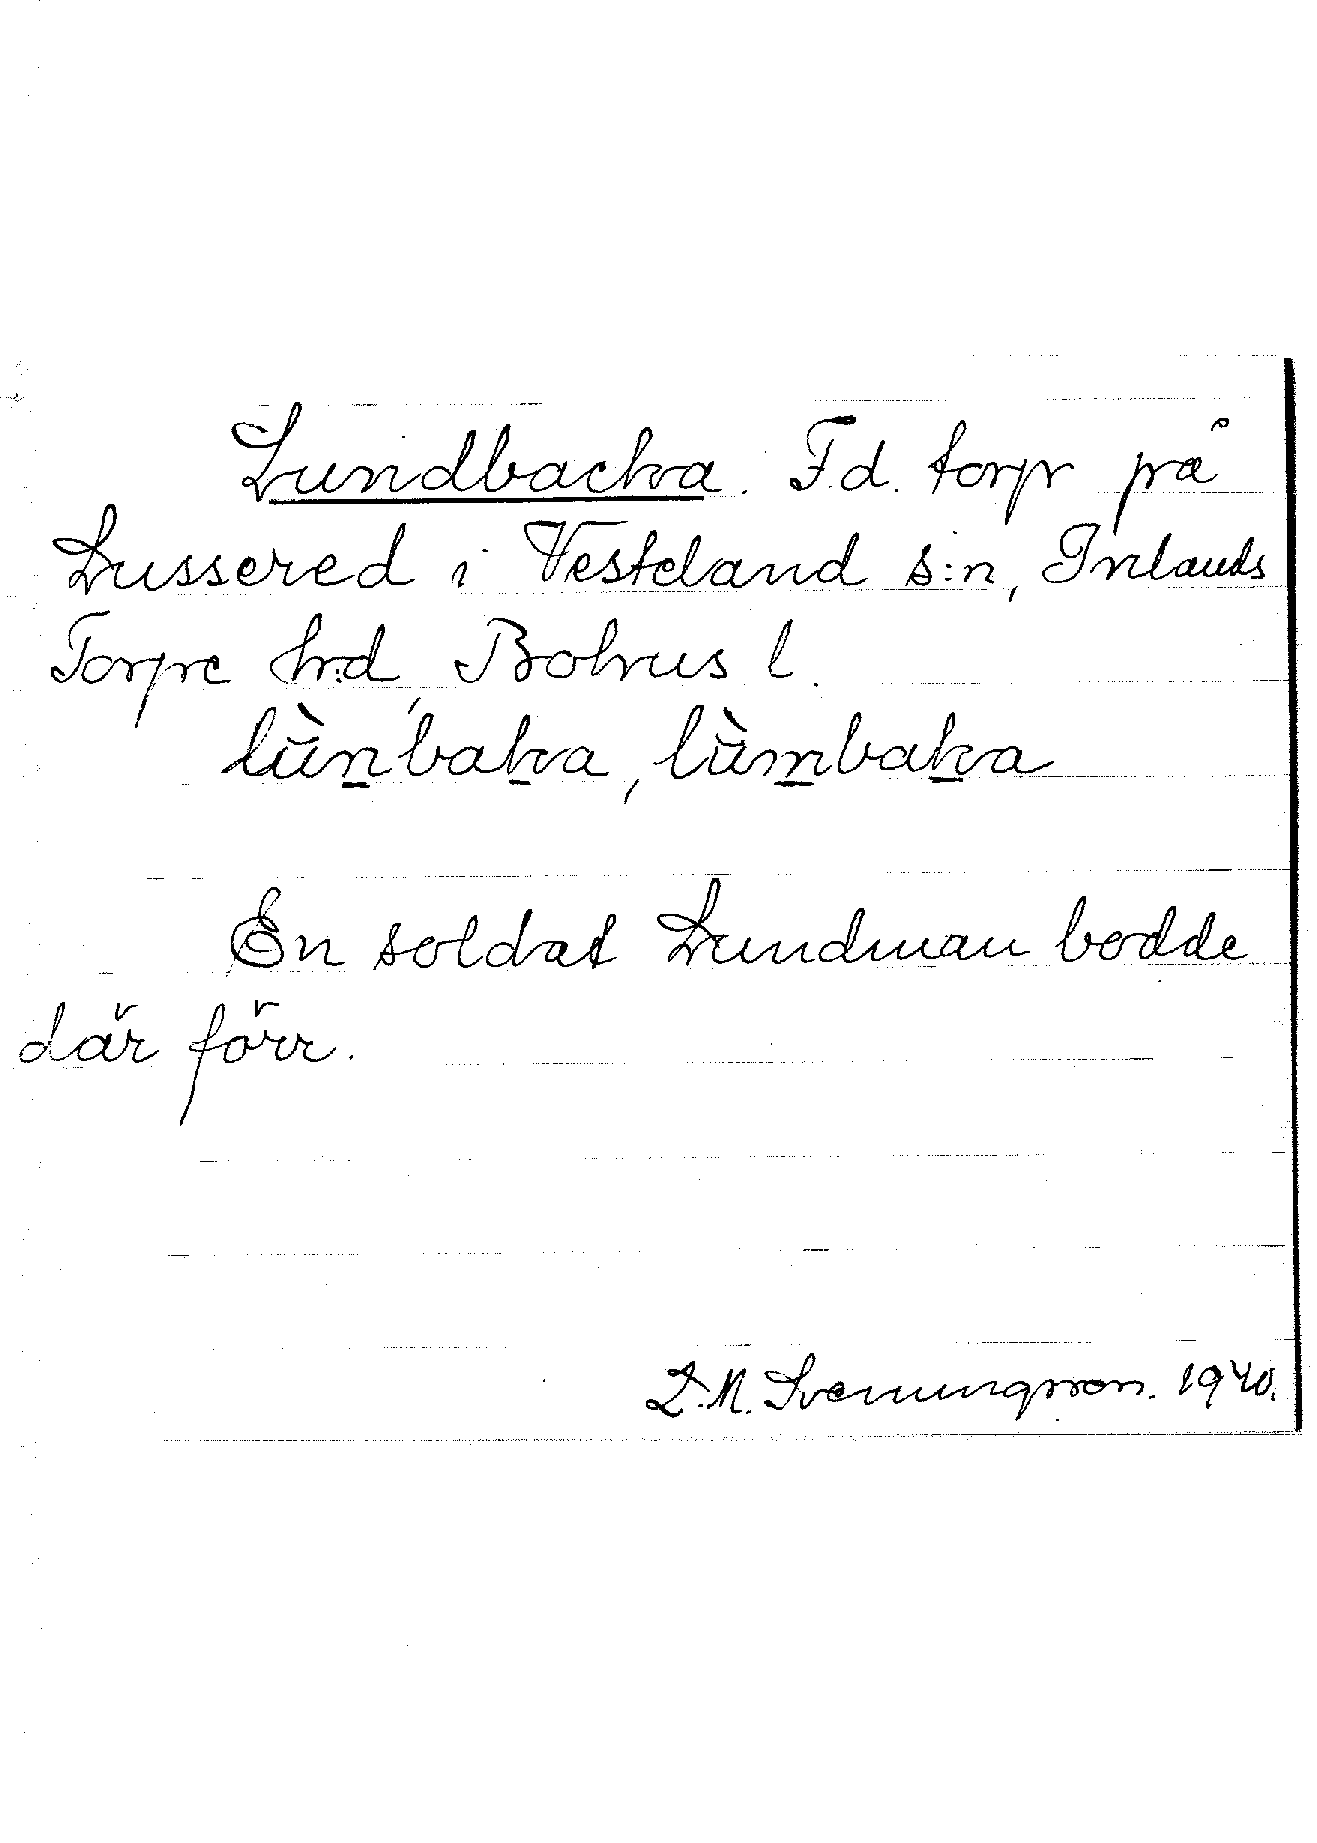 Lundbacka. F.d. torp på
Lussered i Vesteland s:n, Inlands
Torpe hrd, Bohus l.
lùnbaka, lùmbaka
En soldat Lundman bodde
där förr.
L.M. Svenungsson. 1940.